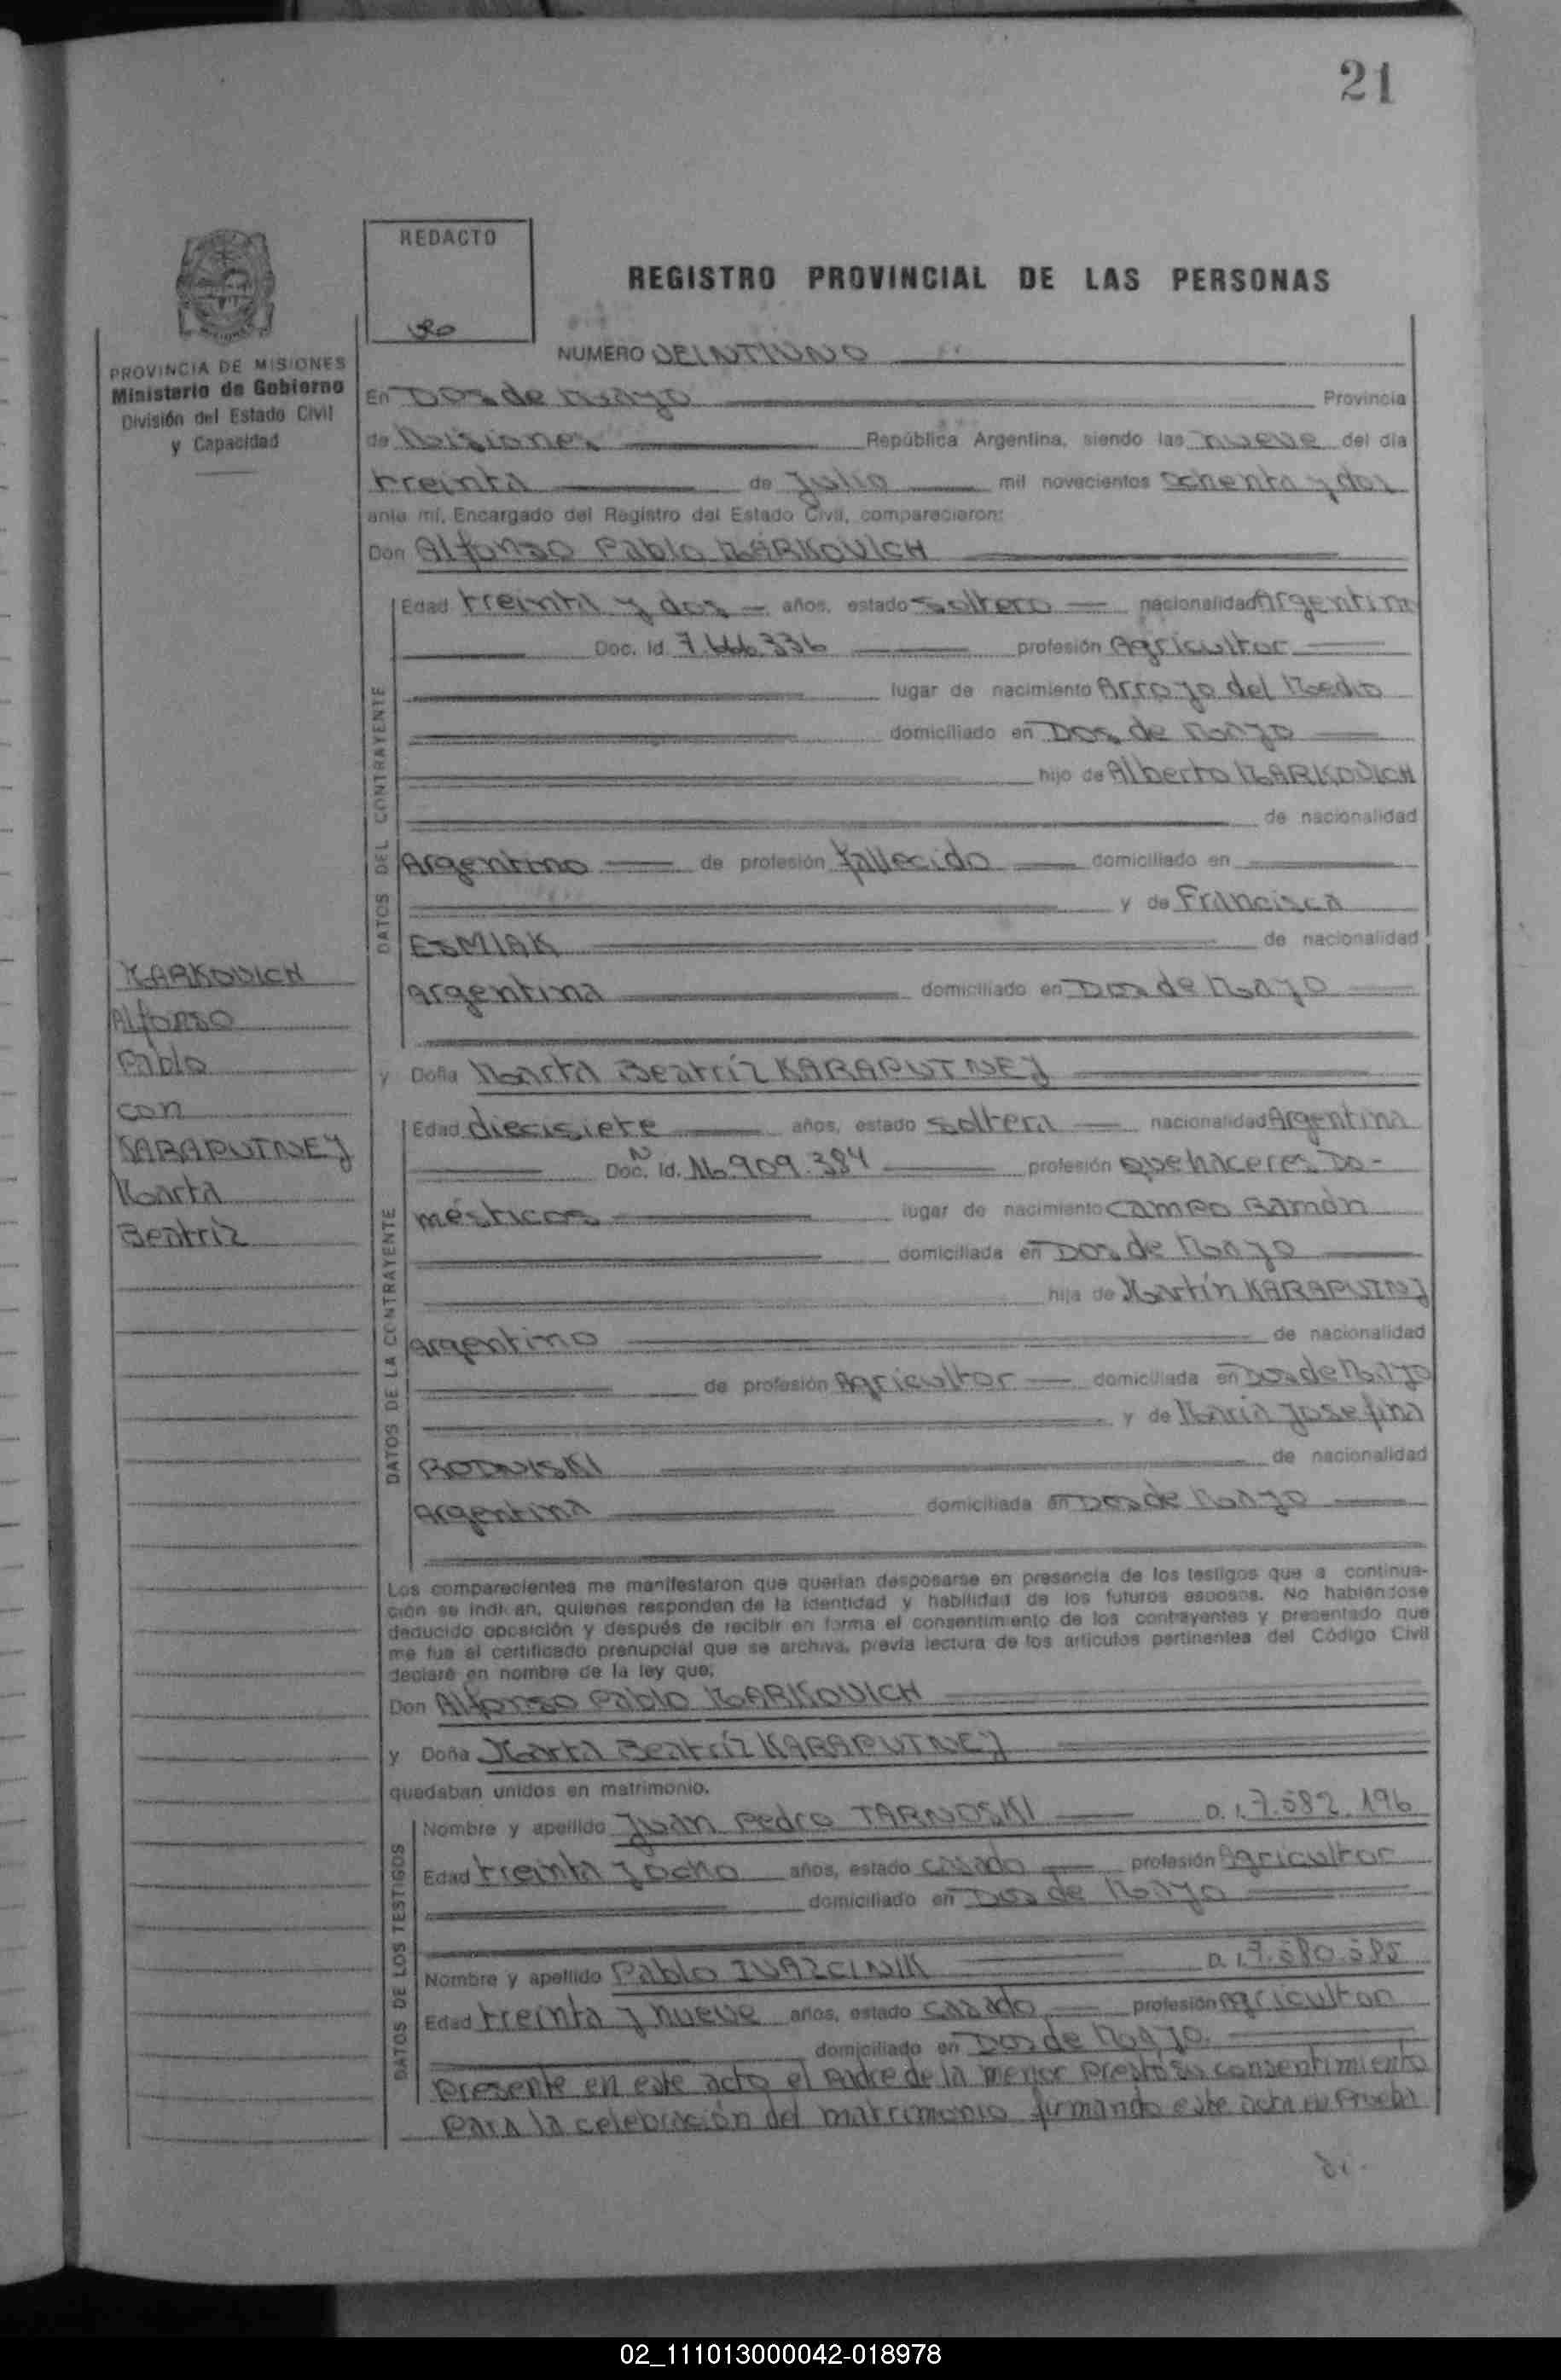 21
REDACTO
REGISTRO PROVINCIAL DE LAS PERSONAS
PROVINCIA DE MISIONES
Ministerio de Gobierno
División del Estado Civil
y Capacidad
NUMERO VEINTIUNO
En Dos de Mayo Provincia
de Misiones República Argentina, siendo las nueve del día
treinta de Julio mil novecientos ochenta y dos
ante mí, Encargado del Registro del Estado Civil, comparecieron:
Don Alfonso Pablo MARKOVICH
DATOS DEL CONTRAYENTE
Edad treinta y dos años, estado soltero nacionalidad Argentina
Doc. Id. 7.666.336 profesión Agricultor
lugar de nacimiento Arroyo del Medio
domiciliado en Dos de Mayo
hijo de Alberto MARKOVICH
de nacionalidad
Argentino de profesión fallecido domiciliado en
y de Francisca
ESMIAK de nacionalidad
Argentina domiciliado en Dos de Mayo
MARKOVICH
Alfonso
Pablo
con
KARAPUTNEJ
Marta
Beatríz
y Doña Marta Beatríz KARAPUTNEJ
DATOS DE LA CONTRAYENTE
Edad diecisiete años, estado soltera nacionalidad Argentina
Doc. Id. Nº 16.909.384 profesión quehaceres Do-
mésticos lugar de nacimiento Campo Ramón
domiciliada en Dos de Mayo
hija de Martín KARAPUTNJ
Argentino de nacionalidad
de profesión Agricultor domiciliada en Dos de Mayo
y de María Josefina
RODNISKI de nacionalidad
Argentina domiciliada en Dos de Mayo
Los comparecientes me manifestaron que querían desposarse en presencia de los testigos que a continua-
ción se indican, quienes responden de la identidad y habilidad de los futuros esposos. No habiéndose
deducido oposición y después de recibir en forma el consentimiento de los contrayentes y presentado que
me fue el certificado prenupcial que se archiva, previa lectura de los artículos pertinentes del Código Civil
declaré en nombre de la ley que;
Don Alfonso Pablo MARKOVICH
y Doña Marta Beatríz KARAPUTNEJ
quedaban unidos en matrimonio.
DATOS DE LOS TESTIGOS
Nombre y apellido Juan Pedro TARNOSKI D.I. 7.582.196
Edad treinta y ocho años, estado casado profesión Agricultor
domiciliado en Dos de Mayo
Nombre y apellido Pablo D.I. 7.580.585
Edad treinta y nueve años, estado casado profesión Agricultor
domiciliado en Dos de Mayo.
Presente en este acto el Padre de la menor prestó su consentimiento
para la celebración del matrimonio firmando este acta en Prueba
02_111013000042-018978